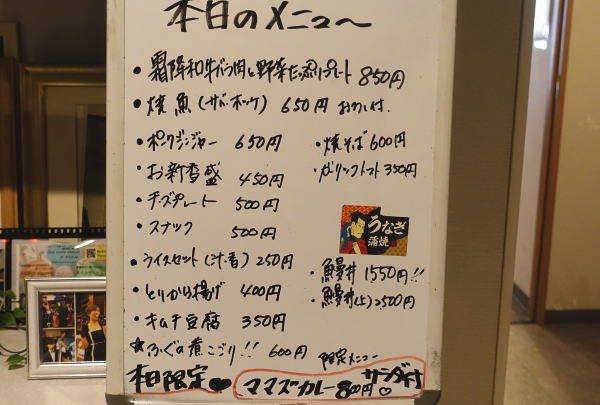 本日のメニュー
・霜降和牛バラ肉と野菜たっぷりプレート 850円
・焼魚(サバ・ホッケ) 650円 おかし付
・ポークジンジャー 650円
・お新香盛 450円
・チーズプレート 500円
・スナック 500円
・ライスセット(汁・香) 250円
・とりから揚げ 400円
・キムチ豆腐 350円
☆ふぐの煮こごり!! 600円
・焼そば 600円
・ガーリックトースト 350円
うなぎ
蒲焼
・鰻丼 1550円!!
・鰻丼(上) 2500円
限定メニュー
本日限定♥ ママズカレー 800円♡ サラダ付